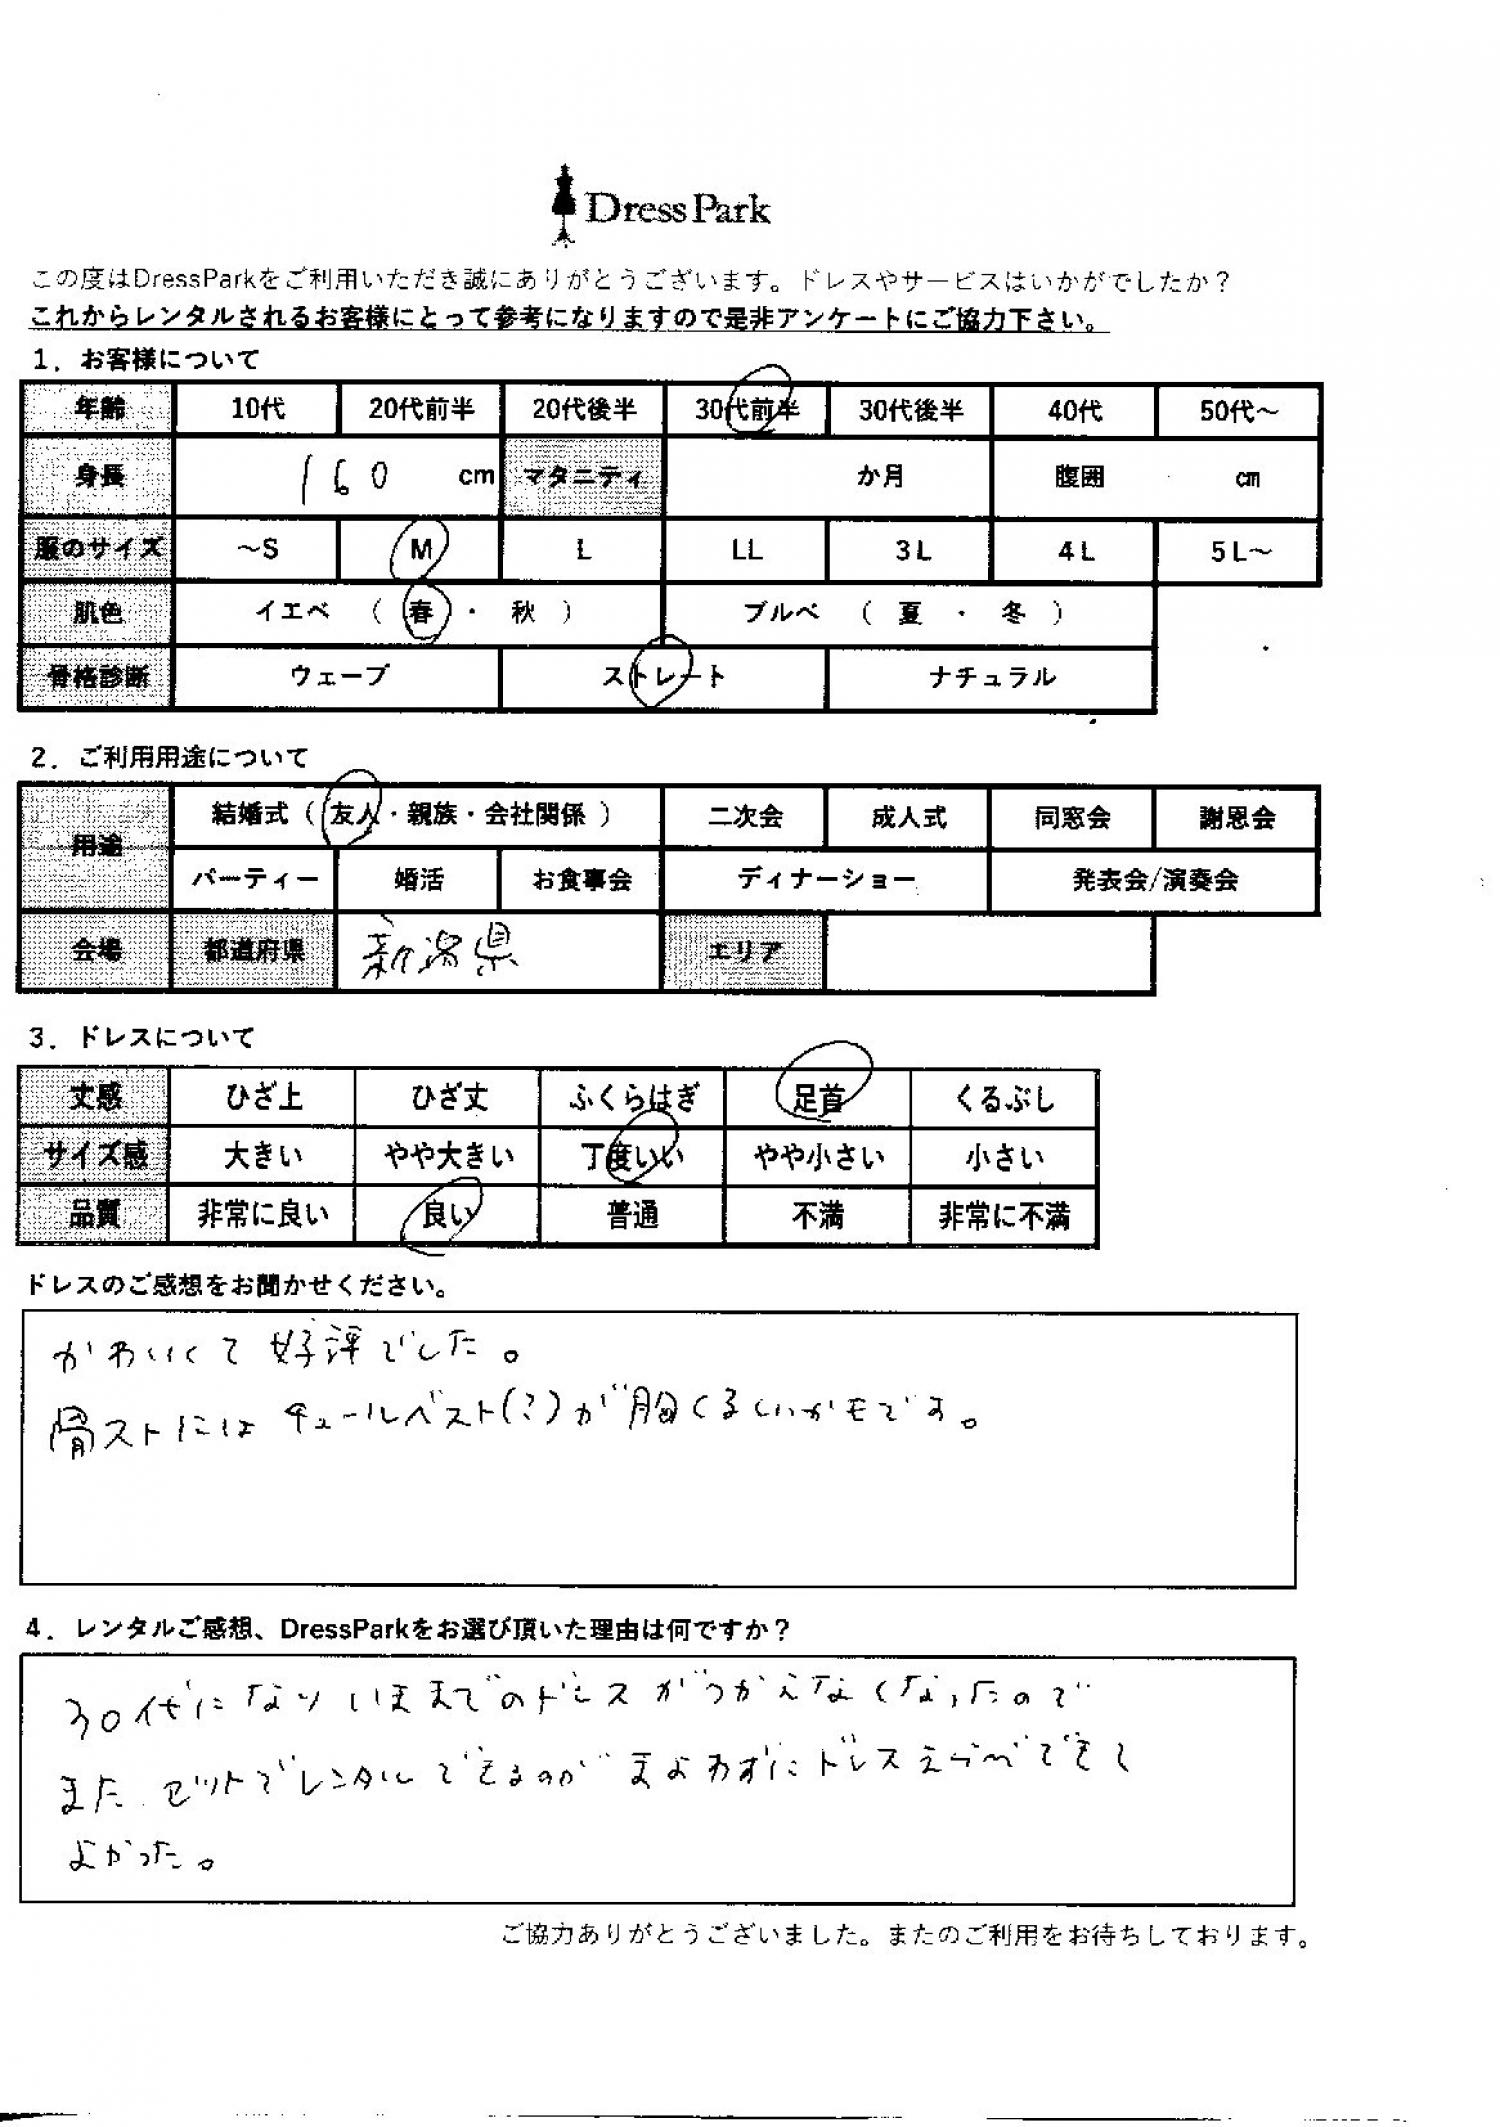 DressPark
この度はDressParkをご利用いただき誠にありがとうございます。ドレスやサービスはいかがでしたか？
これからレンタルされるお客様にとって参考になりますので是非アンケートにご協力下さい。
1．お客様について
年齢 10代 20代前半 20代後半 30代前半 30代後半 40代 50代〜
身長 160 cm マタニティ か月 腹囲 cm
服のサイズ 〜S M L LL 3L 4L 5L〜
肌色 イエベ （ 春 ・ 秋 ） ブルベ （ 夏 ・ 冬 ）
骨格診断 ウェーブ ストレート ナチュラル
2．ご利用用途について
用途 結婚式（ 友人・親族・会社関係 ） 二次会 成人式 同窓会 謝恩会
パーティー 婚活 お食事会 ディナーショー 発表会/演奏会
会場 都道府県 新潟県 エリア
3．ドレスについて
丈感 ひざ上 ひざ丈 ふくらはぎ 足首 くるぶし
サイズ感 大きい やや大きい 丁度いい やや小さい 小さい
品質 非常に良い 良い 普通 不満 非常に不満
ドレスのご感想をお聞かせください。
かわいくて好評でした。
骨ストにはチュールベスト(?)が胸くるしいかもです。
4．レンタルご感想、DressParkをお選び頂いた理由は何ですか？
30代になりいままでのドレスがつかえなくなったので
また セットでレンタルできるのがまよわずにドレスえらべできて
よかった。
ご協力ありがとうございました。またのご利用をお待ちしております。